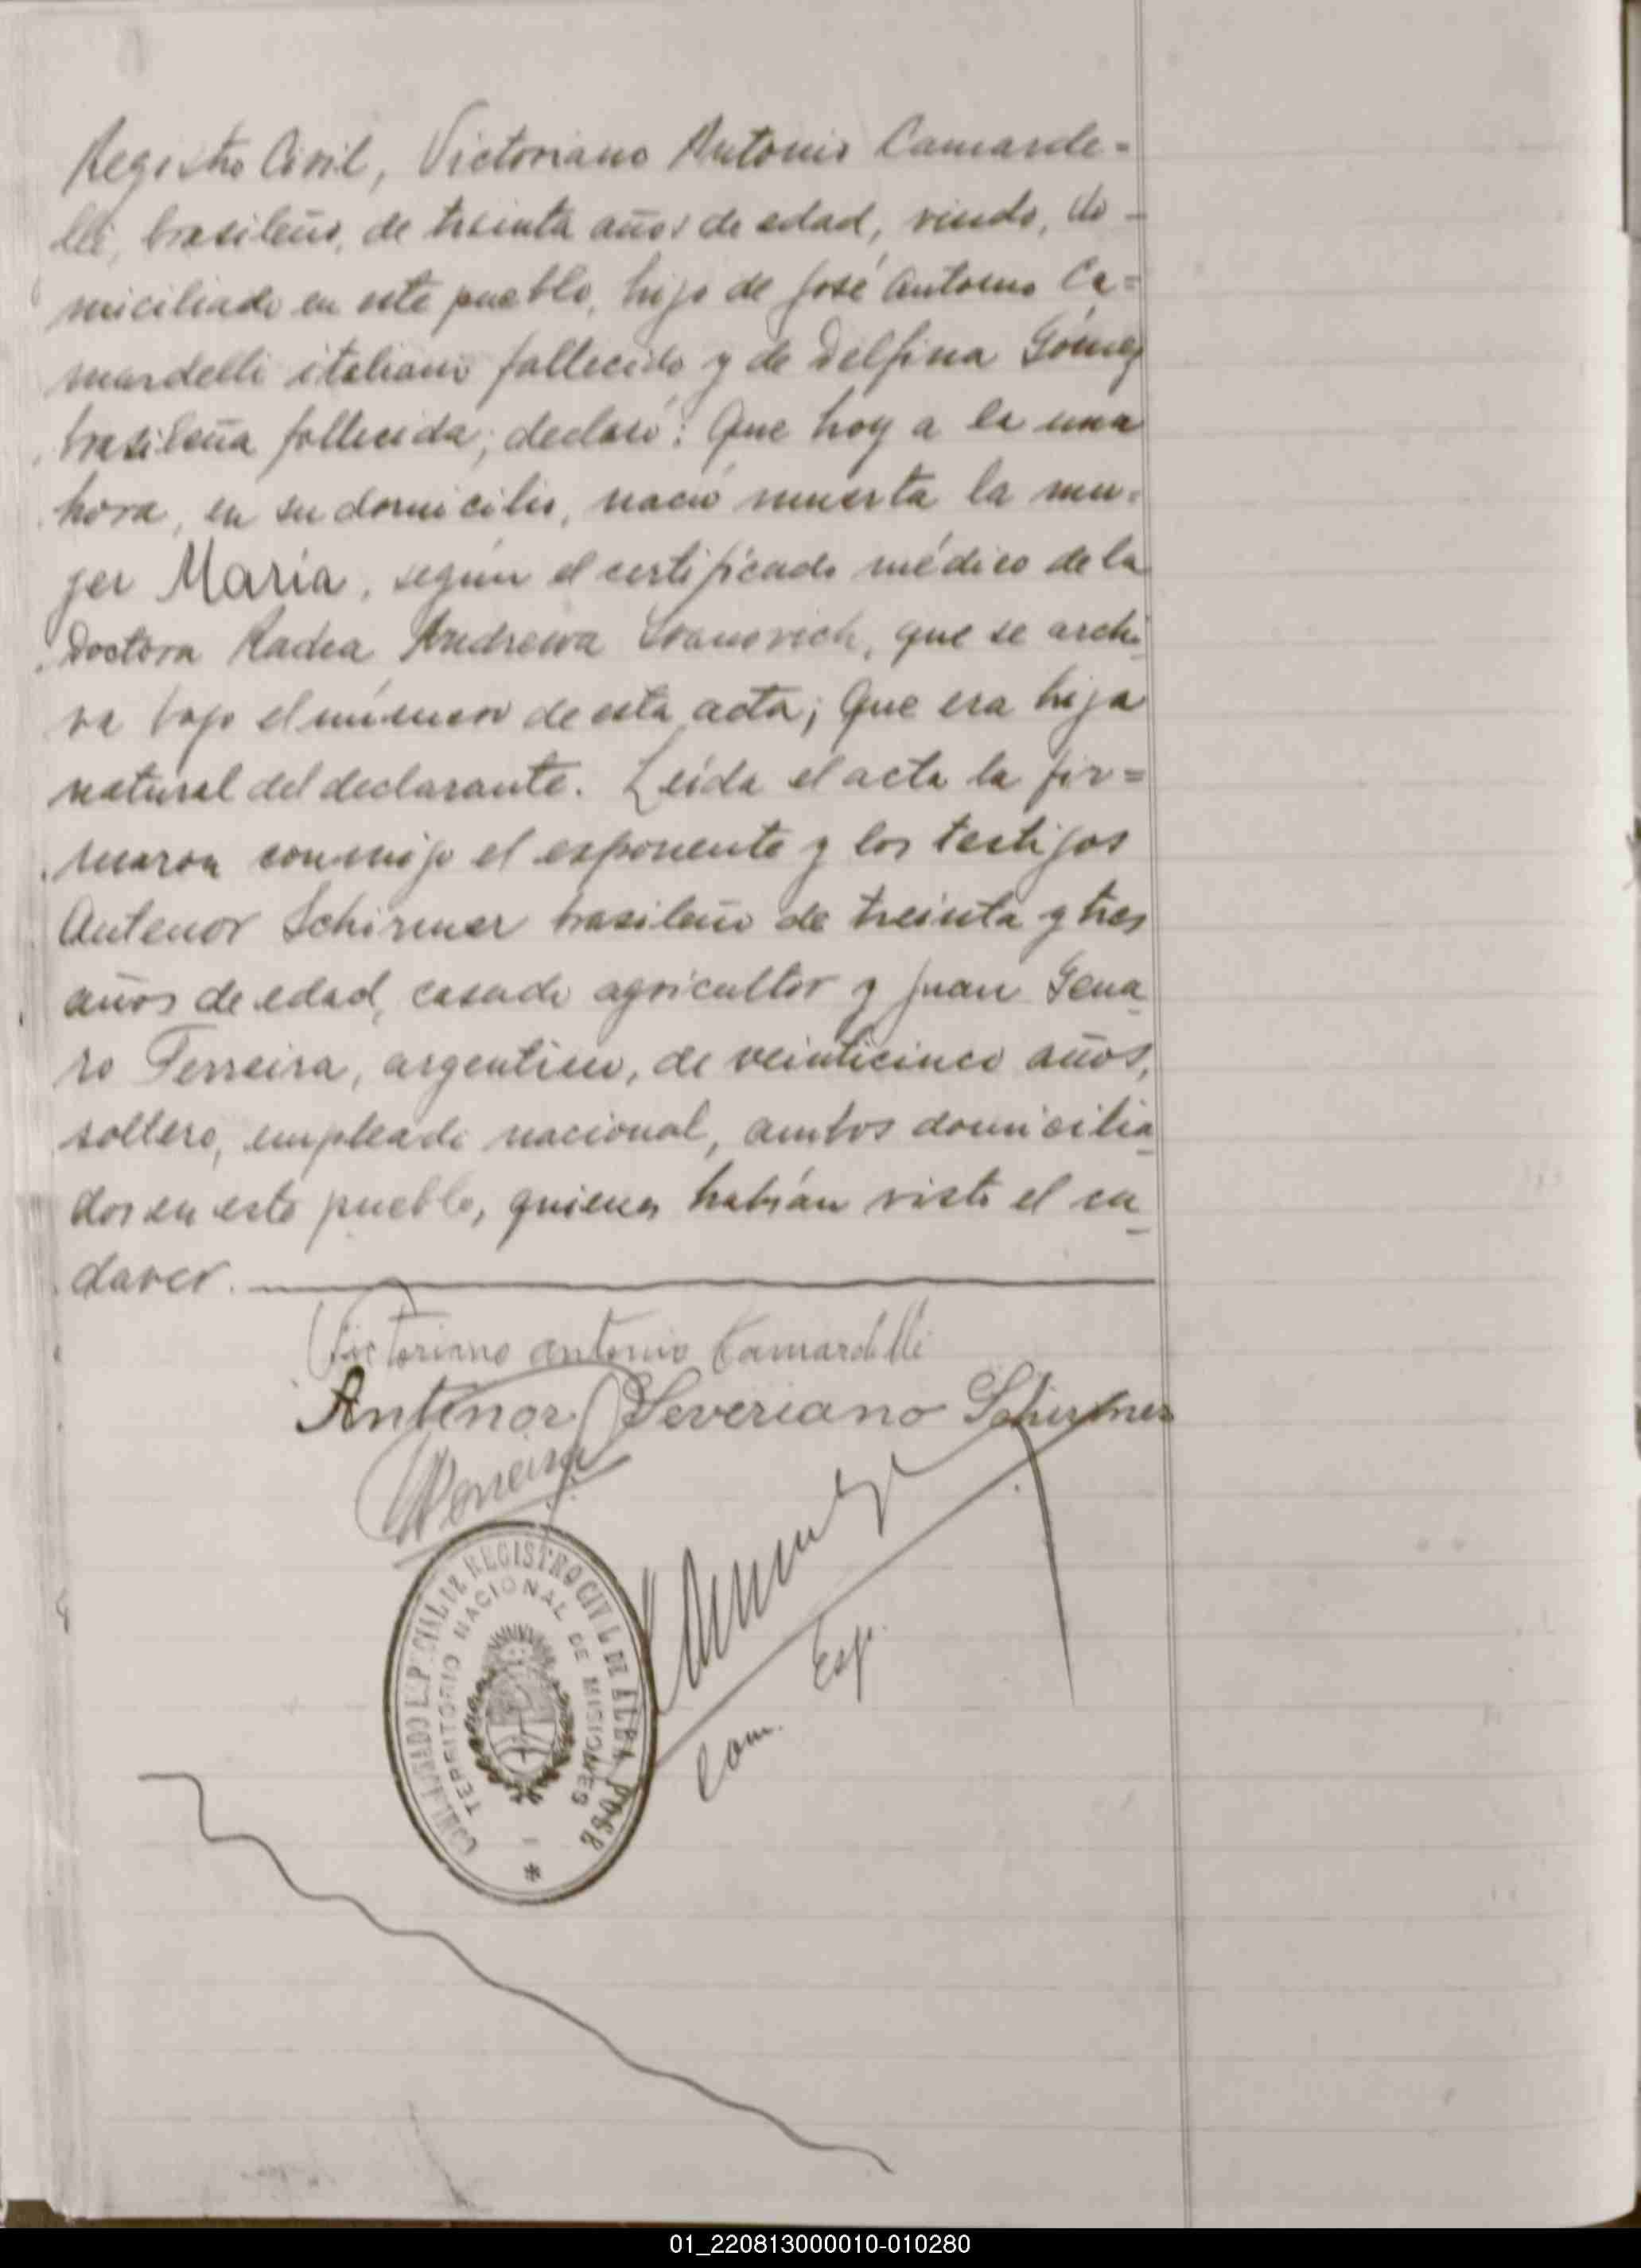 Registro Civil, Victoriano Antonio Camarde-
lli, brasileño, de treinta años de edad, viudo, do-
miciliado en este pueblo, hijo de José Antonio Ca=
mardelli italiano fallecido y de Delfina Gómez
brasileña fallecida; declaró: Que hoy a la una
hora, en su domicilio, nació muerta la mu-
jer María, según el certificado médico de la
Doctora Radea Andrewa Ivanovich, que se archi
va bajo el número de esta acta; Que era hija
natural del declarante. Leída el acta la fir=
maron conmigo el exponente y los testigos
Antenor Schirmer brasileño de treinta y tres
años de edad, casado agricultor y Juan Gena
ro Ferreira, argentino, de veinticinco años,
soltero, empleado nacional, ambos domicilia
dos en este pueblo, quienes habían visto el ca
daver.
Victoriano antonio Camardelli
Antenor Severiano Schirmer
Ferreira
Esp.
Com.
REGISTRO CIVIL DE ALBA POSSE
TERRITORIO NACIONAL DE MISIONES
01_220813000010-010280